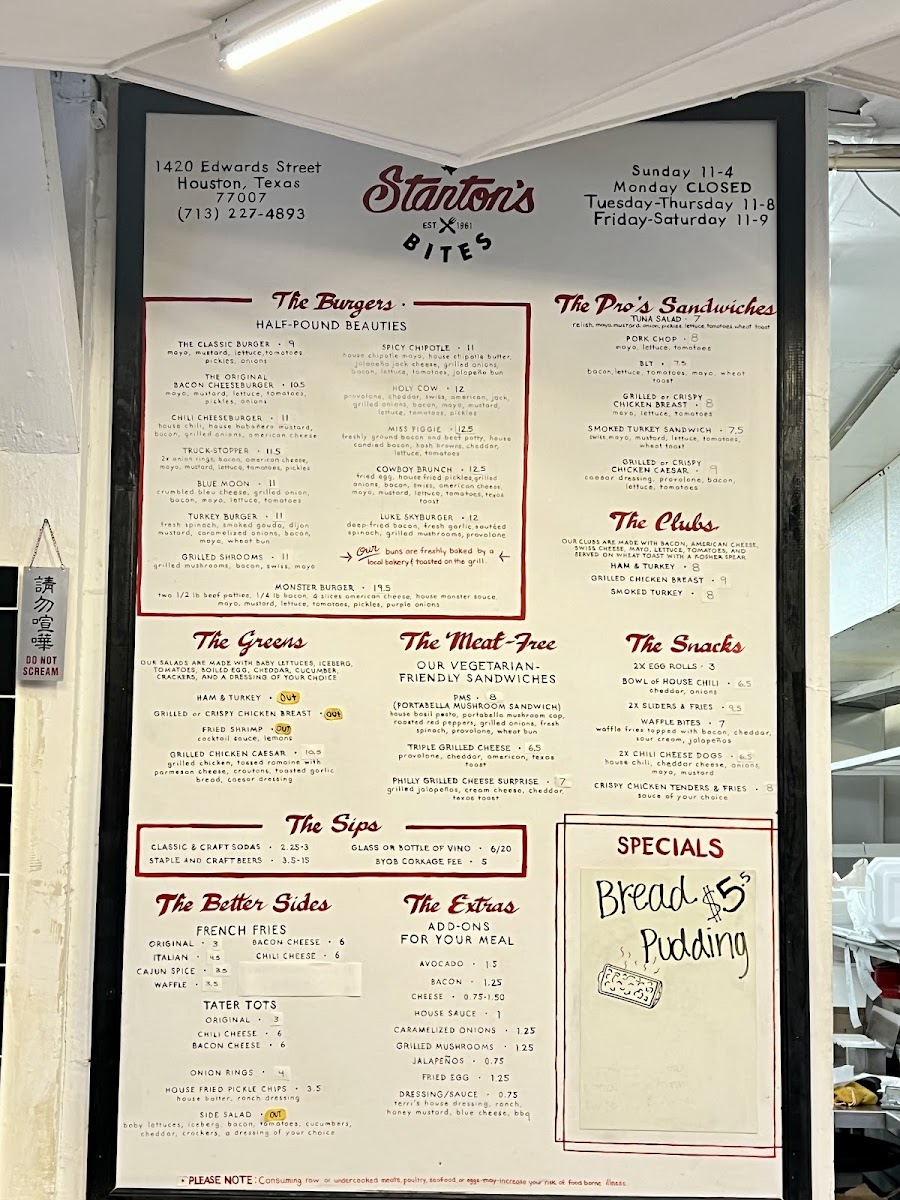 1420 Edwards Street
Houston, Texas
77007
(713) 227-4893
Stanton's
EST 1961
BITES
Sunday 11-4
Monday CLOSED
Tuesday-Thursday 11-8
Friday-Saturday 11-9
The Burgers
HALF-POUND BEAUTIES
THE CLASSIC BURGER • 9
mayo, mustard, lettuce, tomatoes,
pickles, onions
THE ORIGINAL
BACON CHEESEBURGER • 10.5
mayo, mustard, lettuce, tomatoes,
pickles, onions
CHILI CHEESEBURGER • 11
house chili, house habanero mustard,
bacon, grilled onions, american cheese
TRUCK-STOPPER • 11.5
2x onion rings, bacon, american cheese,
mayo, mustard, lettuce, tomatoes, pickles
BLUE MOON • 11
crumbled bleu cheese, grilled onion,
bacon, mayo, lettuce, tomatoes
TURKEY BURGER • 11
fresh spinach, smoked gouda, dijon
mustard, caramelized onions, bacon,
mayo, wheat bun
GRILLED SHROOMS • 11
grilled mushrooms, bacon, swiss, mayo
SPICY CHIPOTLE • 11
house chipotle mayo, house chipotle butter,
jalapeño jack cheese, grilled onions,
bacon, lettuce, tomatoes, jalapeño bun
HOLY COW • 12
provolone, cheddar, swiss, american, jack,
grilled onions, bacon, mayo, mustard,
lettuce, tomatoes, pickles
MISS PIGGIE • 12.5
freshly ground bacon and beef patty, house
candied bacon, hash browns, cheddar,
lettuce, tomatoes
COWBOY BRUNCH • 12.5
fried egg, house fried pickles, grilled
onions, bacon, swiss, american cheese,
mayo, mustard, lettuce, tomatoes, texas
toast
LUKE SKYBURGER • 12
deep-fried bacon, fresh garlic, sautéed
spinach, grilled mushrooms, provolone
Our buns are freshly baked by a
local bakery & toasted on the grill.
MONSTER BURGER • 19.5
two 1/2 lb beef patties, 1/4 lb bacon, 4 slices american cheese, house monster sauce,
mayo, mustard, lettuce, tomatoes, pickles, purple onions
The Pro's Sandwiches
TUNA SALAD • 7
relish, mayo, mustard, onion, pickles, lettuce, tomatoes, wheat toast
PORK CHOP • 8
mayo, lettuce, tomatoes
BLT • 7.5
bacon, lettuce, tomatoes, mayo, wheat
toast
GRILLED or CRISPY
CHICKEN BREAST • 8
mayo, lettuce, tomatoes
SMOKED TURKEY SANDWICH • 7.5
swiss, mayo, mustard, lettuce, tomatoes,
wheat toast
GRILLED or CRISPY
CHICKEN CAESAR • 9
caesar dressing, provolone, bacon,
lettuce, tomatoes
The Clubs
OUR CLUBS ARE MADE WITH BACON, AMERICAN CHEESE,
SWISS CHEESE, MAYO, LETTUCE, TOMATOES, AND
SERVED ON WHEAT TOAST WITH A KOSHER SPEAR
HAM & TURKEY • 8
GRILLED CHICKEN BREAST • 9
SMOKED TURKEY • 8
請勿喧嘩
DO NOT
SCREAM
The Greens
OUR SALADS ARE MADE WITH BABY LETTUCES, ICEBERG,
TOMATOES, BOILED EGG, CHEDDAR, CUCUMBER,
CRACKERS, AND A DRESSING OF YOUR CHOICE
HAM & TURKEY • OUT
GRILLED or CRISPY CHICKEN BREAST • OUT
FRIED SHRIMP • OUT
cocktail sauce, lemons
GRILLED CHICKEN CAESAR • 10.5
grilled chicken, tossed romaine with
parmesan cheese, croutons, toasted garlic
bread, caesar dressing
The Meat-Free
OUR VEGETARIAN-
FRIENDLY SANDWICHES
PMS • 8
(PORTABELLA MUSHROOM SANDWICH)
house basil pesto, portabella mushroom cap,
roasted red peppers, grilled onions, fresh
spinach, provolone, wheat bun
TRIPLE GRILLED CHEESE • 6.5
provolone, cheddar, american, texas
toast
PHILLY GRILLED CHEESE SURPRISE • 7
grilled jalapeños, cream cheese, cheddar,
texas toast
The Snacks
2X EGG ROLLS • 3
BOWL of HOUSE CHILI • 6.5
cheddar, onions
2X SLIDERS & FRIES • 9.5
WAFFLE BITES • 7
waffle fries topped with bacon, cheddar,
sour cream, jalapeños
2X CHILI CHEESE DOGS • 6.5
house chili, cheddar cheese, onions,
mayo, mustard
CRISPY CHICKEN TENDERS & FRIES • 8
sauce of your choice
The Sips
CLASSIC & CRAFT SODAS • 2.25-3
STAPLE AND CRAFT BEERS • 3.5-15
GLASS OR BOTTLE OF VINO • 6/20
BYOB CORKAGE FEE • 5
The Better Sides
FRENCH FRIES
ORIGINAL • 3
ITALIAN • 4.5
CAJUN SPICE • 3.5
WAFFLE • 3.5
BACON CHEESE • 6
CHILI CHEESE • 6
TATER TOTS
ORIGINAL • 3
CHILI CHEESE • 6
BACON CHEESE • 6
ONION RINGS • 4
HOUSE FRIED PICKLE CHIPS • 3.5
house batter, ranch dressing
SIDE SALAD • OUT
baby lettuces, iceberg, bacon, tomatoes, cucumbers,
cheddar, crackers, a dressing of your choice
The Extras
ADD-ONS
FOR YOUR MEAL
AVOCADO • 1.5
BACON • 1.25
CHEESE • 0.75-1.50
HOUSE SAUCE • 1
CARAMELIZED ONIONS • 1.25
GRILLED MUSHROOMS • 1.25
JALAPEÑOS • 0.75
FRIED EGG • 1.25
DRESSING/SAUCE • 0.75
terri's house dressing, ranch,
honey mustard, blue cheese, bbq
SPECIALS
Bread $5.5
Pudding
• PLEASE NOTE: Consuming raw or undercooked meats, poultry, seafood, or eggs may increase your risk of food borne illness.